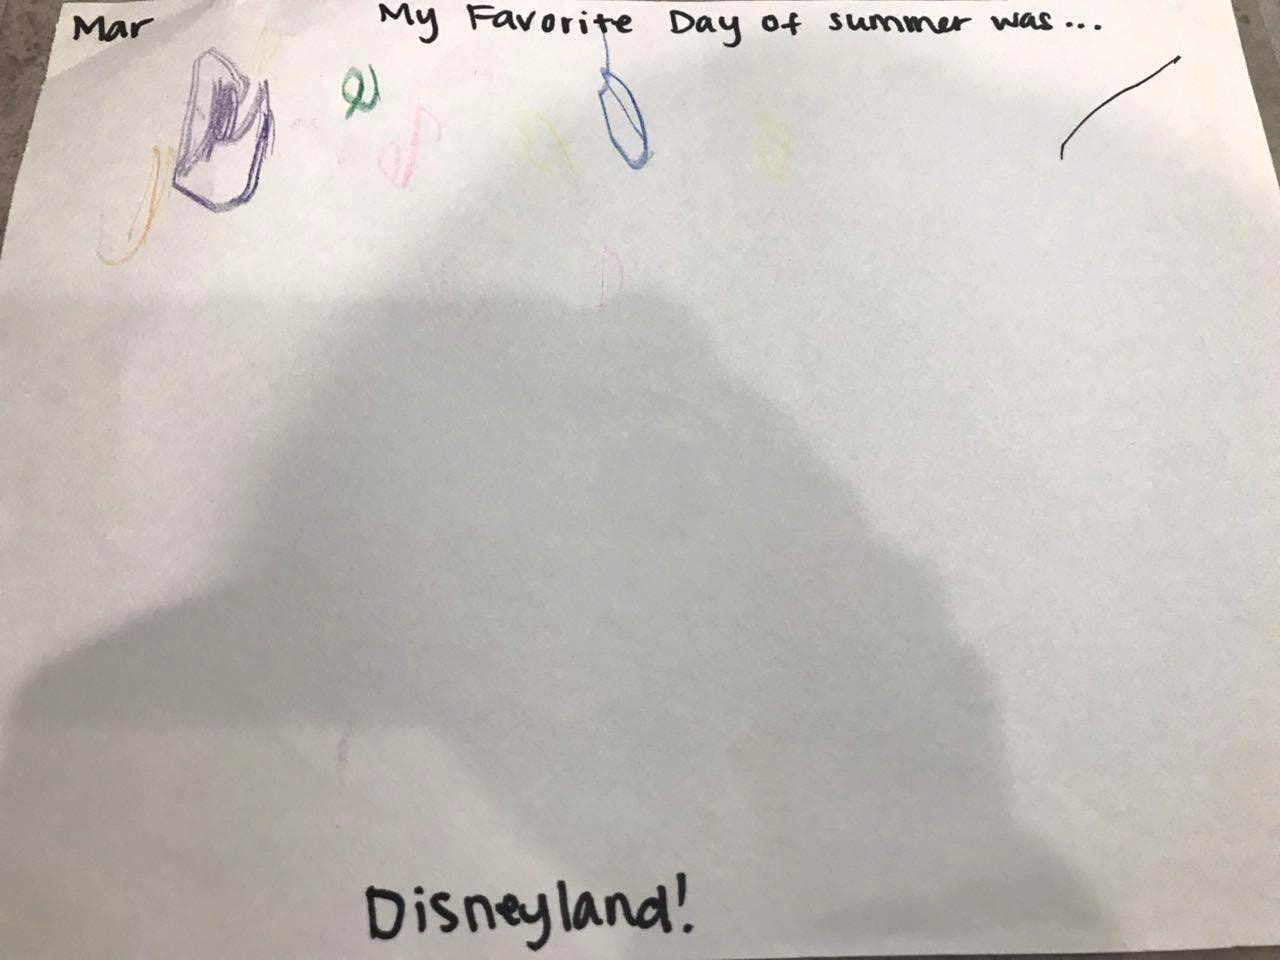 Mar My Favorite Day of summer was...
Disneyland!